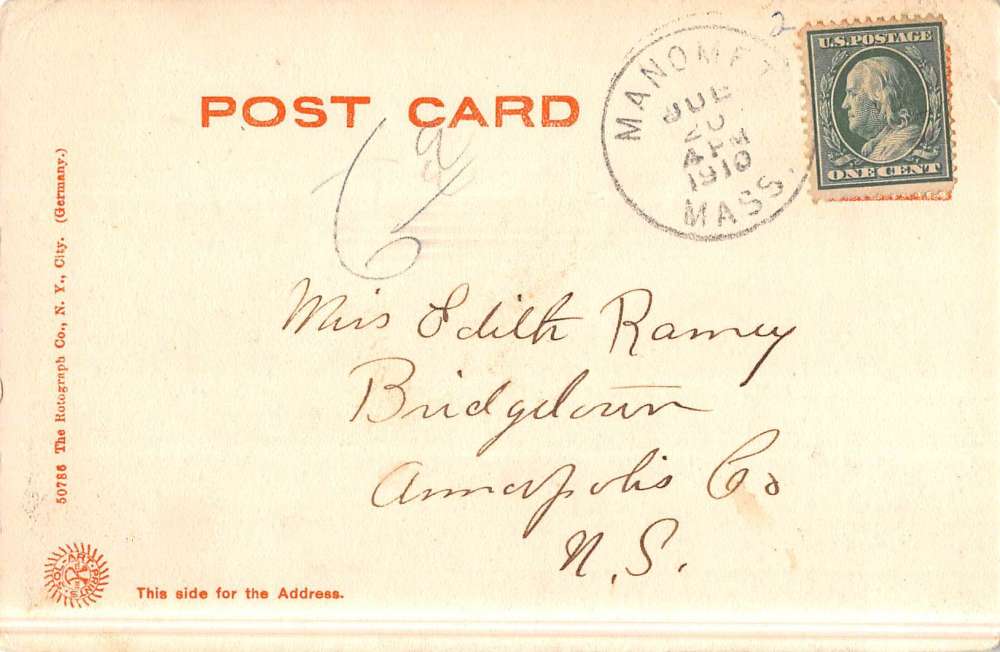 POST CARD
MANOMET
JUL
20
4 PM
1910
MASS.
2
U.S. POSTAGE
ONE CENT
Miss Edith Ramey
Bridgetown
Annapolis Co
N.S.
50786 The Rotograph Co., N. Y., City. (Germany.)
SOL-ART PRINTS
This side for the Address.